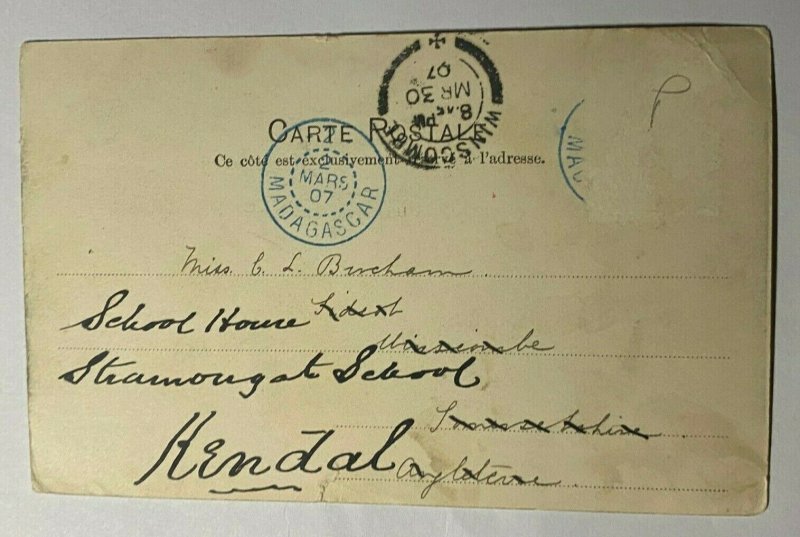 WINSCOMBE
8.15 PM
MR 30
07
CARTE POSTALE
Ce côté est exclusivement réservé à l'adresse.
2
MARS
07
MADAGASCAR
MAD
Miss. C. L. Bircham.
School House
Winscombe
Stramongate School
Somersetshire
Kendal
Angleterre